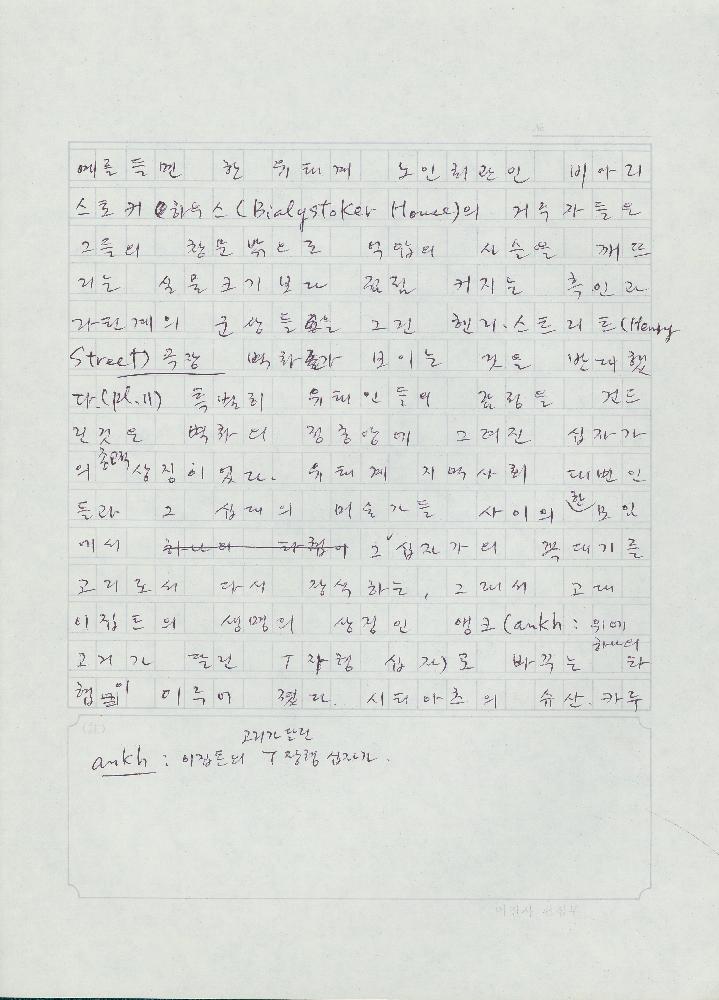 No
예를 들면 한 유태계 노인회관인 비아리
스토커 하우스(Bialystoker House)의 거주자들은
그들의 창문 밖으로 억압의 사슬을 깨뜨
리는 실물크기보다 곱절 커지는 흑인과
라틴계의 군상들을 그린 헨리·스트리트(Henry
Street) 벽화가 보이는 것을 반대했
다.(pl.11) 특별히 유태인들의 감정을 건드
린것은 벽화의 정중앙에 그려진 십자가
의 종교적 상징이었다. 유태계 지역사회 대변인
들과 그 십대의 미술가들 사이의 한 모임
에서 하나의 타협이 그 십자가의 꼭대기를
고리로써 다시 장식하는, 그래서 고대
이집트의 생명의 상징인 앵크(ankh: 위에
고리가 달린 T자형 십자)로 바꾸는 하나의 타
협이 이루어 졌다. 시티아츠의 슈산·카루
(註)
고리가 달린
ankh : 이집트의 T자형 십자가.